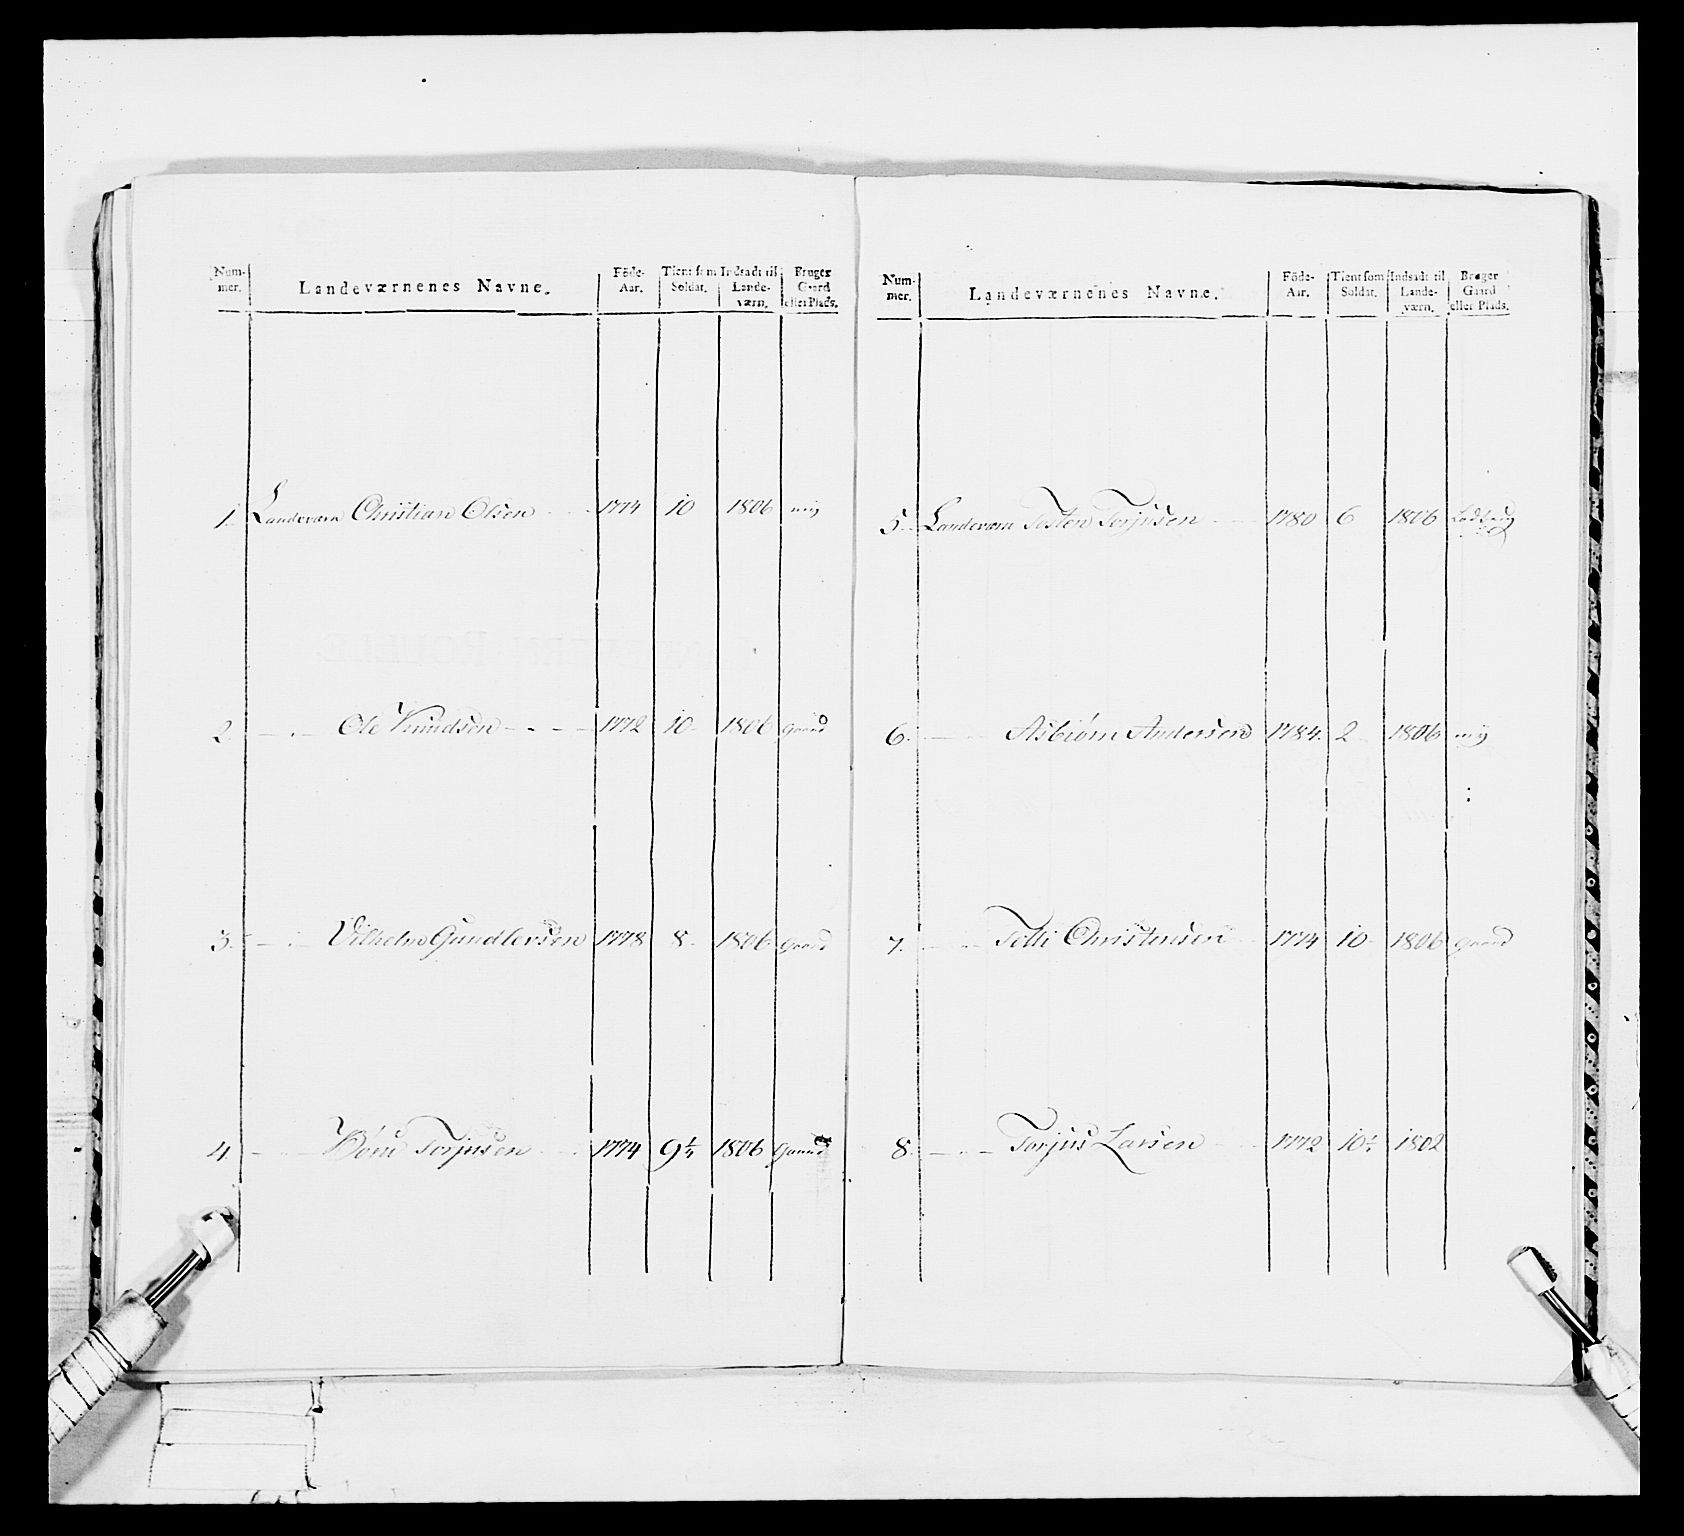 Num- mer. Landeværnenes Navne. Föde- Aar. Tient som Soldat. Indsadt til Lande- værn. Bruger Gaard eller Plads.
1. Landeværn Christian Olsen 1774 10 1806
2. — Ole Knudsen — 1772 10 1806 Gaard
3. — Vilhelm Gundlersen 1778 8 1806 Gaard
4. — Torjusen 1774 9½ 1806 Gaard
Num- mer. Landeværnenes Navne. Föde- Aar. Tient som Soldat. Indsadt til Lande- værn. Bruger Gaard eller Plads.
5. Landeværn Tosten Torjusen 1780 6 1806
6. — Asbiørn Andersen 1784 2 1806
7. — Christensen 1774 10 1806 Gaard
8. — Torjus Larsen 1772 10 1802